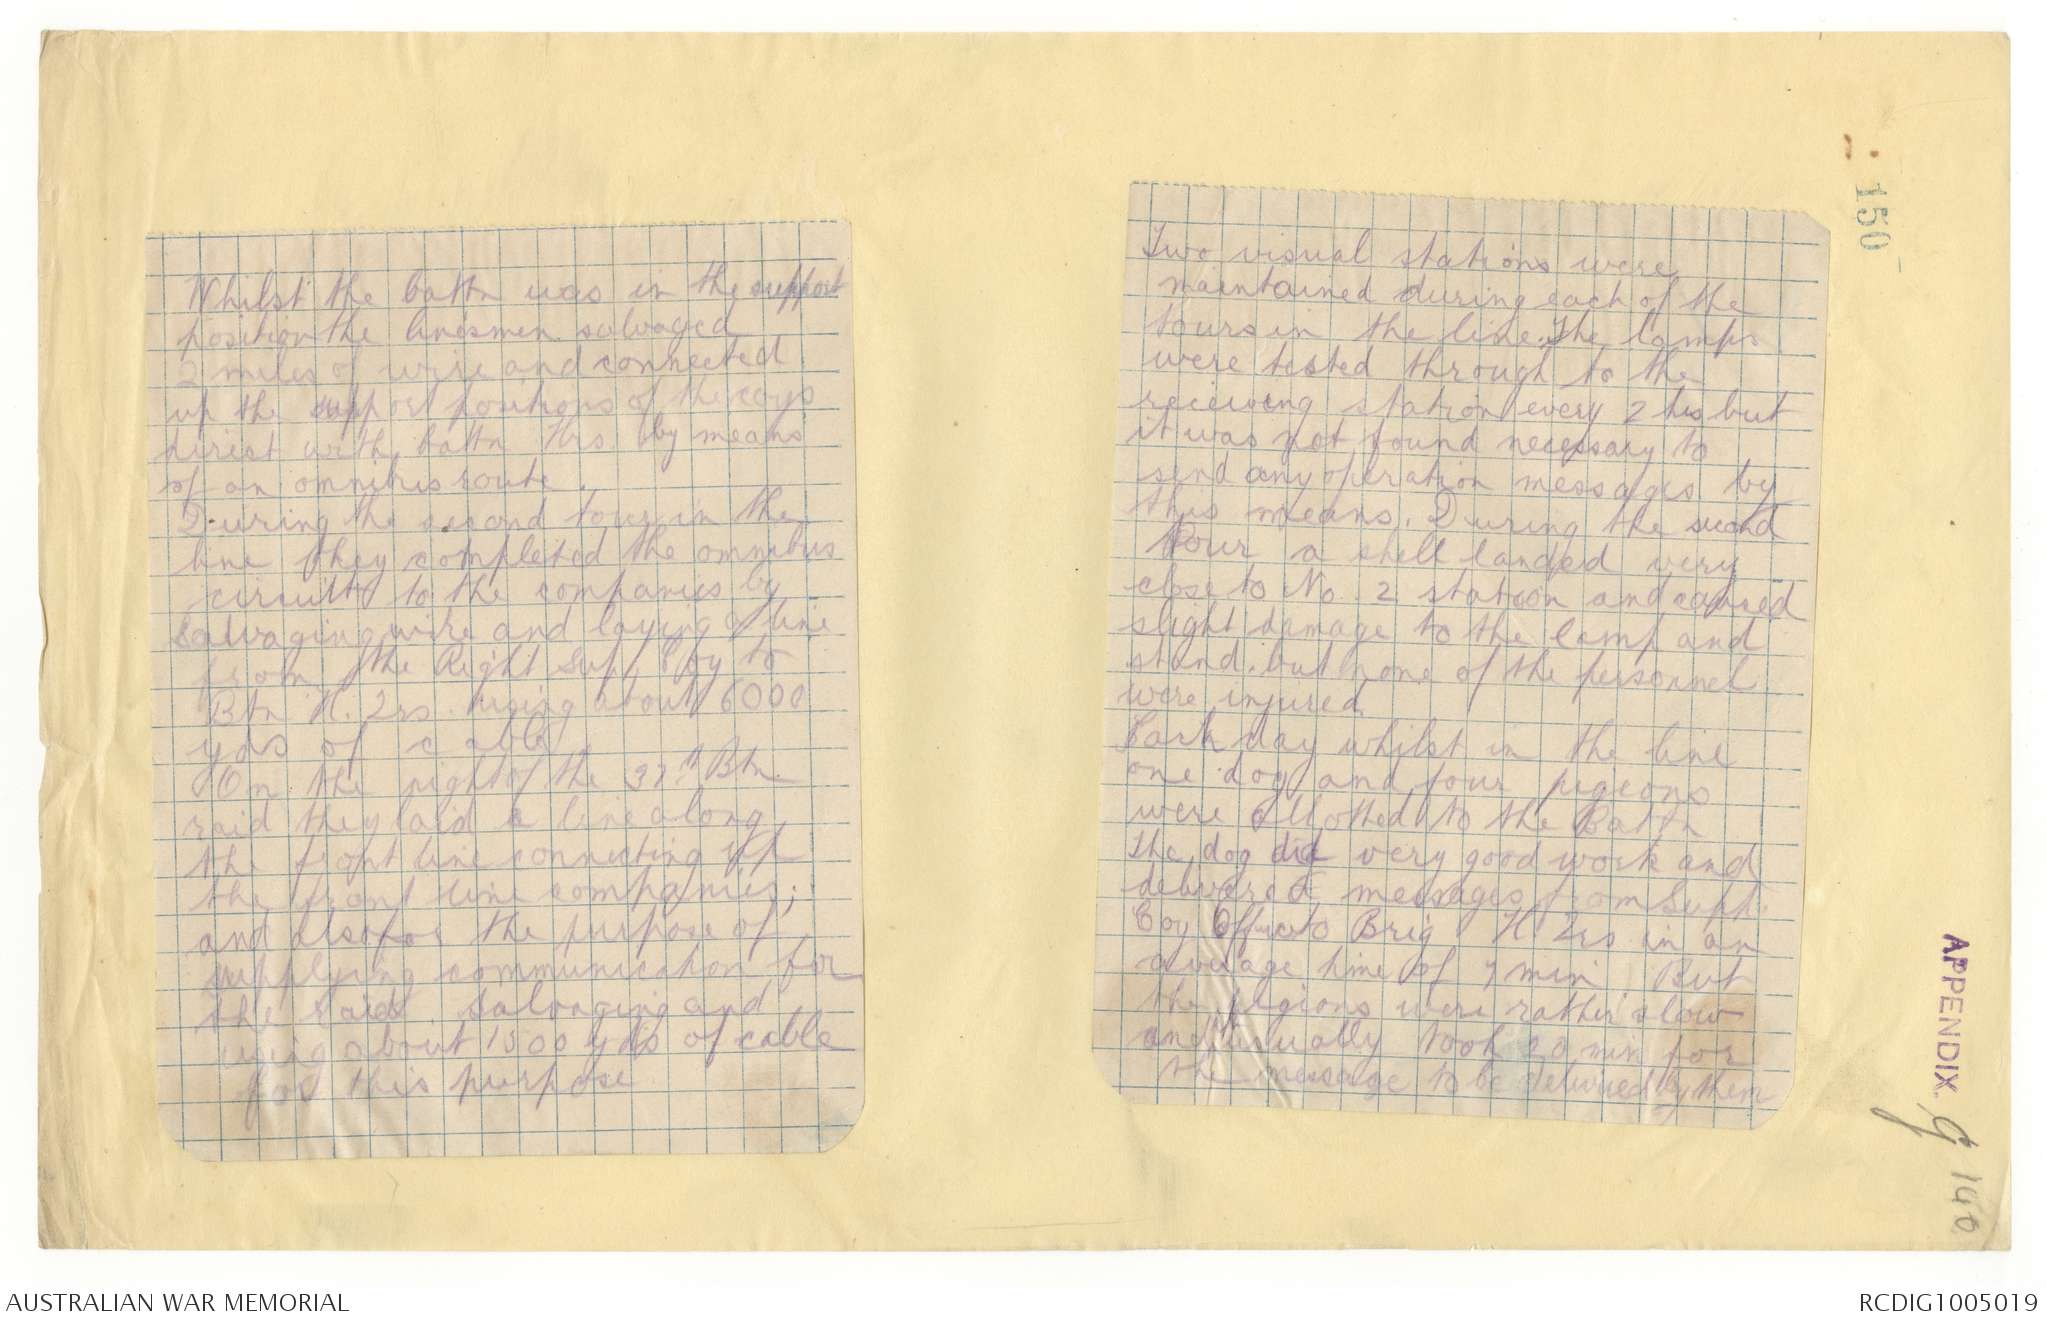 Whilst the battn was in the support
position the linesmen salvaged
2 miles of wire and connected
up the support positions of the coys
direct with battn Hrs by means
of an omnibus route.
During the second tour in the
line they completed the omnibus
circuit to the companies by
salvaging wire and laying a line
from the Right Sup. Coy to
Btn H. Qrs. using about 6000
yds of cable
On the night of the 37th Btn.
raid they laid a line along
the front line connecting up
the front line companies;
and also for the purpose of
supplying communication for
the raid. Salvaging and
using about 1500 yds of cable
for this purpose
Two visual stations were
maintained during each of the
tours in the line. The lamps
were tested through to the
receiving station every 2 hrs but
it was not found necessary to
send any operation messages by
this means. During the second
tour a shell landed very
close to No. 2 station and caused
slight damage to the lamp and
stand. but none of the personnel
were injured
Each day whilst in the line
one dog and four pigeons
were allotted to the Battn
The dog did very good work and
delivered messages from Supp.
Coy Office to Brig H. Qrs in an
average time of 7 min. But
the pegions were rather slow
and usually took 20 min for
the message to be delivered by them
150
APPENDIX. G
140
AUSTRALIAN WAR MEMORIAL
RCDIG1005019